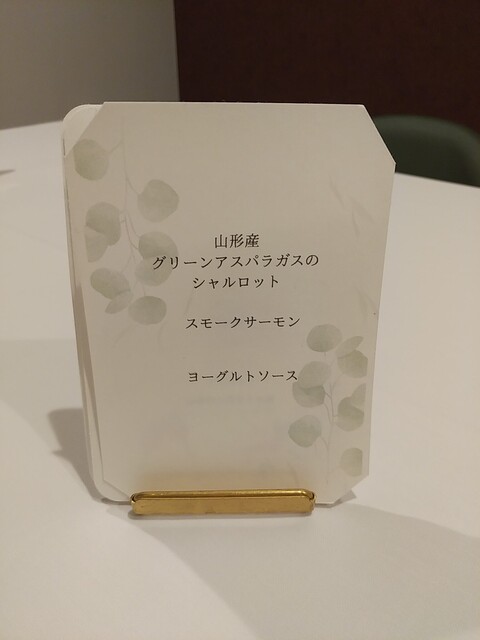 山形産
グリーンアスパラガスの
シャルロット
スモークサーモン
ヨーグルトソース